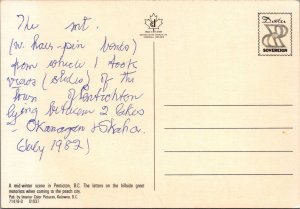 The mt.
(w. hair-pin bends)
from which I took
views (slides) of the
town of Penticton
lying between 2 lakes
- Okanagan & Skaha.
(July 1982)
Dexter
SOVEREIGN
A mid-winter scene in Penticton, B.C. The letters on the hillside great
motorists when coming to the peach city.
Pub. by Interior Color Pictures, Kelowna, B.C.